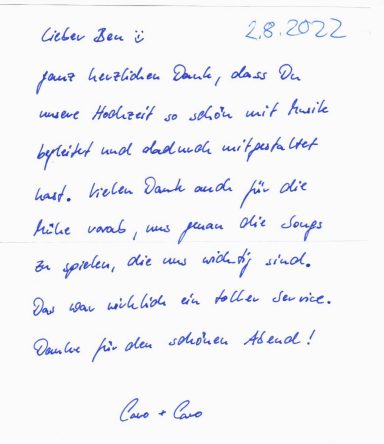 Lieber Ben ☺ 2.8.2022
ganz herzlichen Dank, dass Du
unsere Hochzeit so schön mit Musik
begleitet und dadurch mitgestaltet
hast. Vielen Dank auch für die
Mühe vorab, uns genau die Songs
zu spielen, die uns wichtig sind.
Das war wirklich ein toller Service.
Danke für den schönen Abend!
Caro + Caro